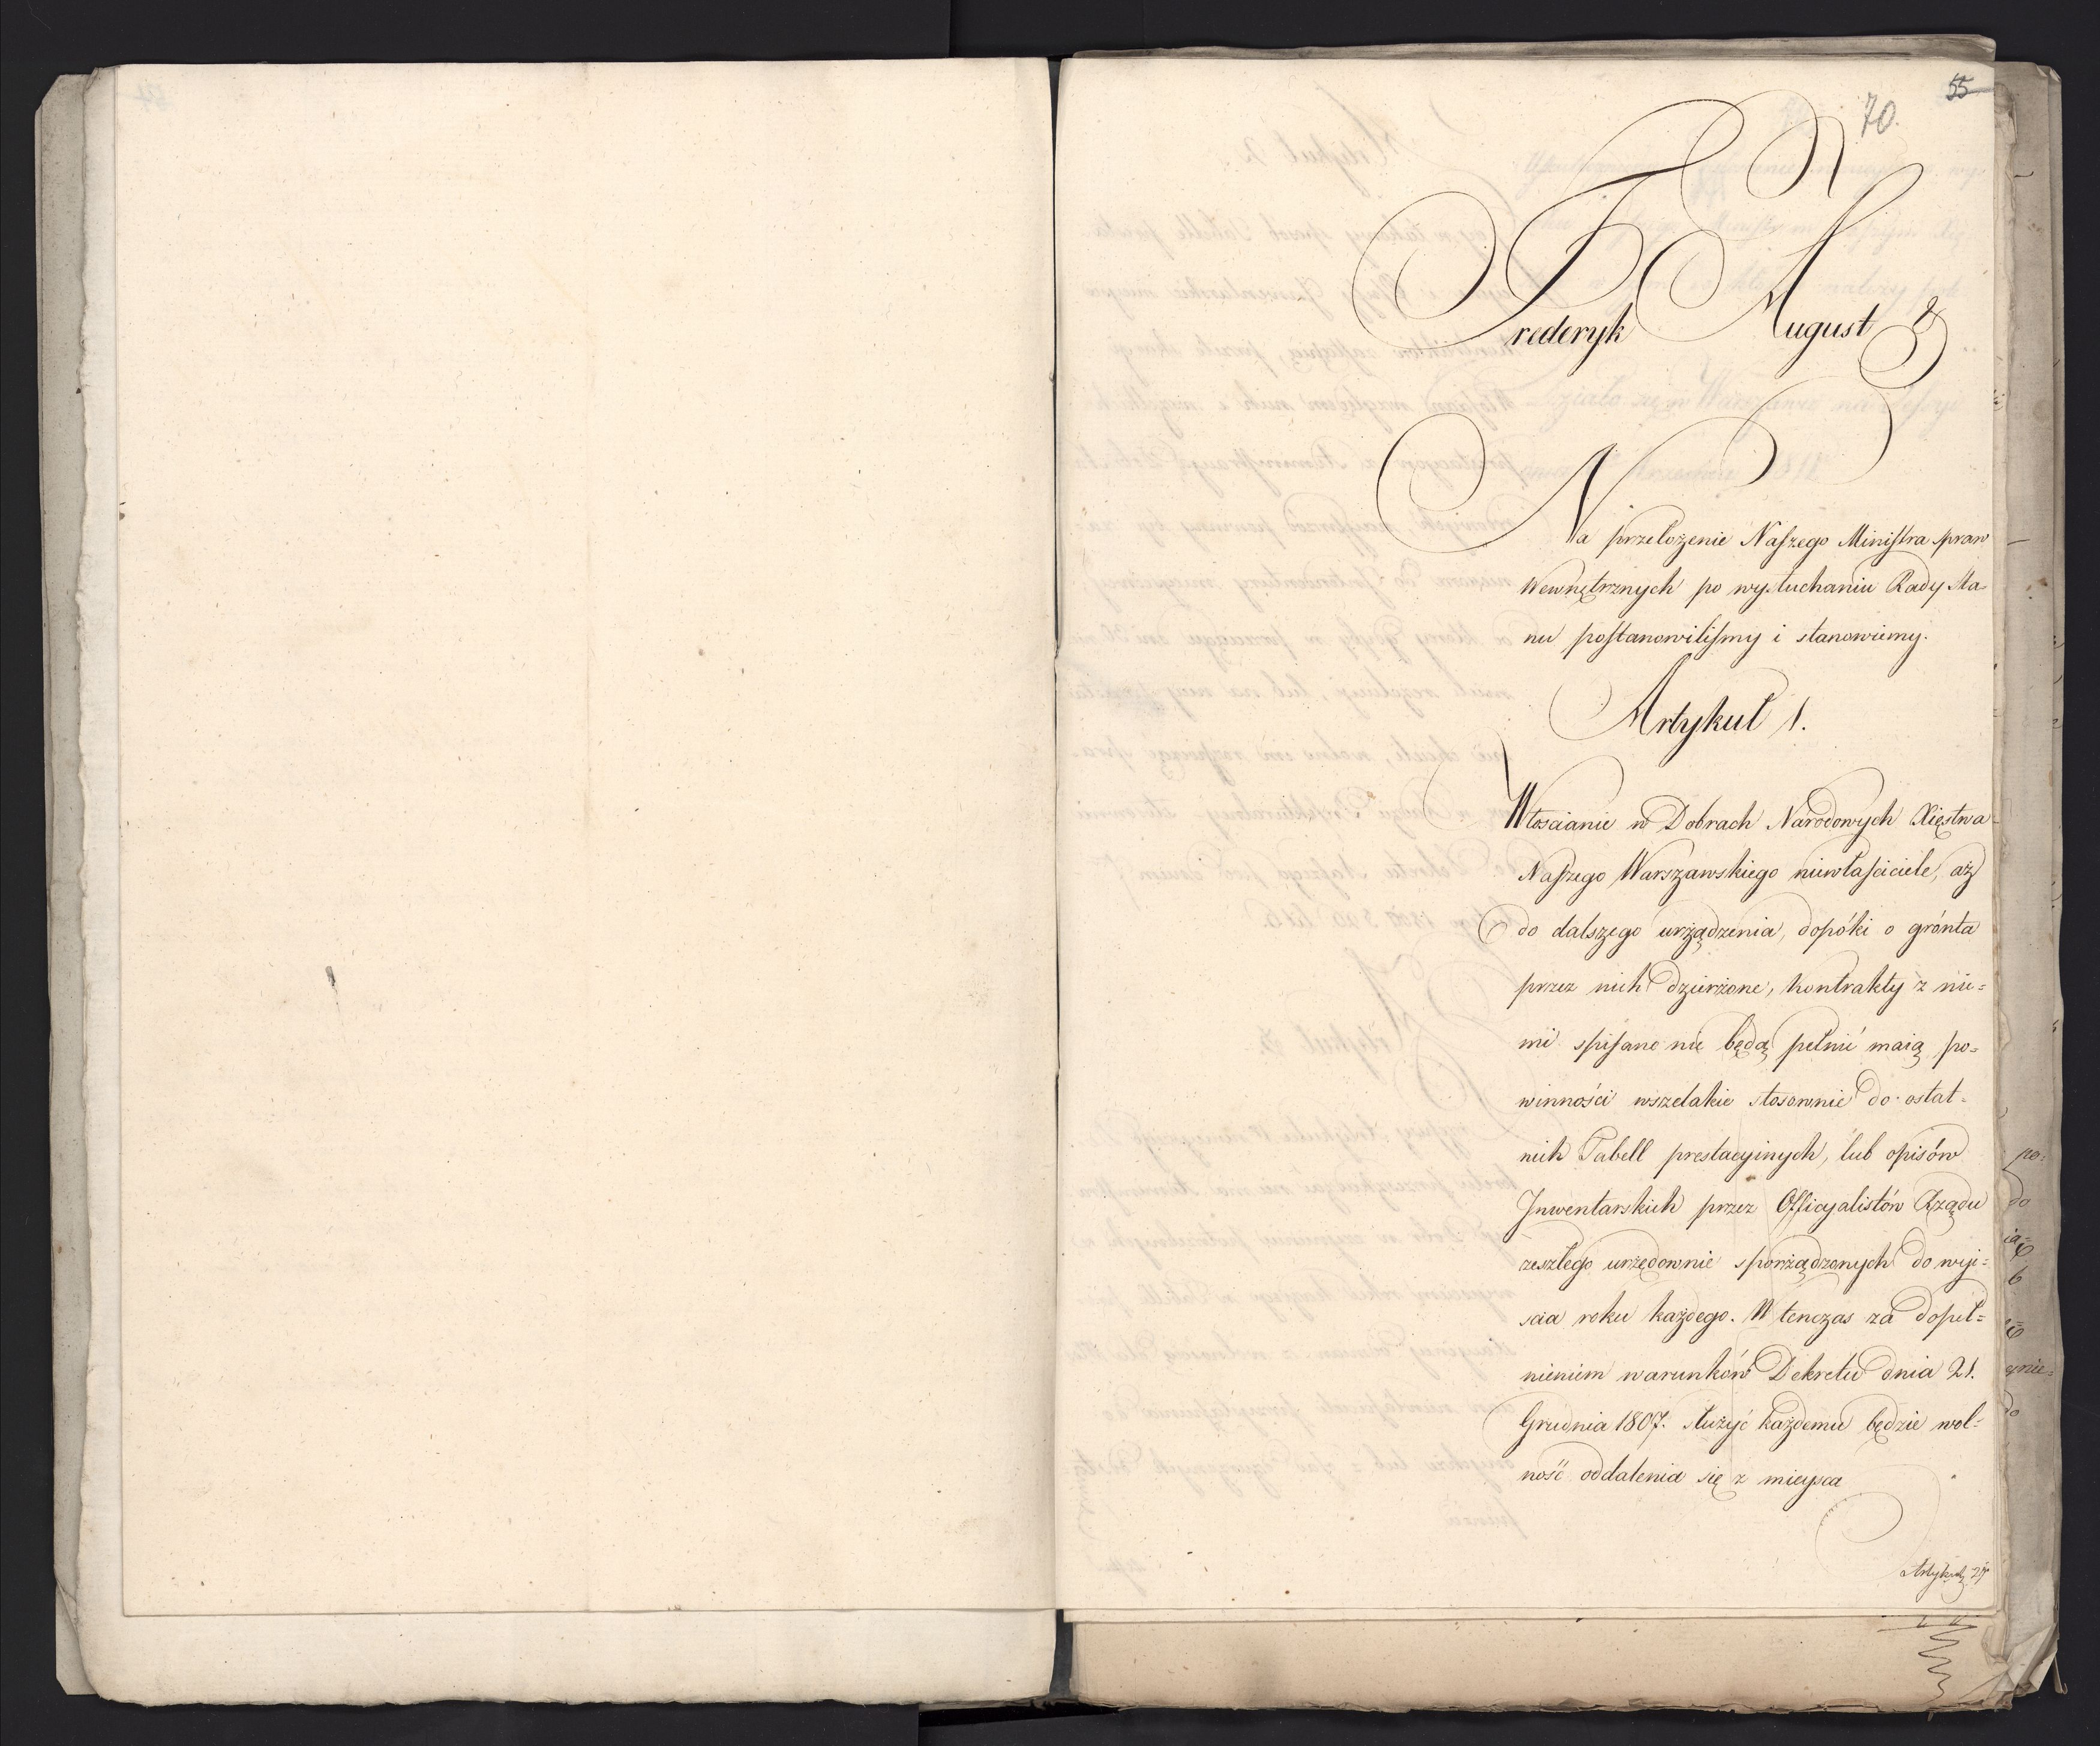 55
70.
Frederyk August &
Na przełożenie Naszego Ministra spraw
Wewnętrznych po wysłuchaniu Rady Sta-
nu postanowiliśmy i stanowiemy.
Artykuł 1.
Włościanie w Dobrach Narodowych Xięstwa
Naszego Warszawskiego niewłaściciele, aż
do dalszego urządzenia, dopóki o grónta
przez nich dzierżone, kontrakty z nie=
mi spisane nie będą pełnić maią po=
winności wszelakie stosownie do ostat=
nich Tabell prestacyinych, lub opisów
Inwentarskich przez Officyalistów Rządu
zeszłego urzędownie sporządzonych do wyi=
scia roku każdego. W tenczas za dopeł=
nieniem warunków Dekretu dnia 21.
Grudnia 1807. służyć każdemu będzie wol=
ność oddalenia się z mieysca